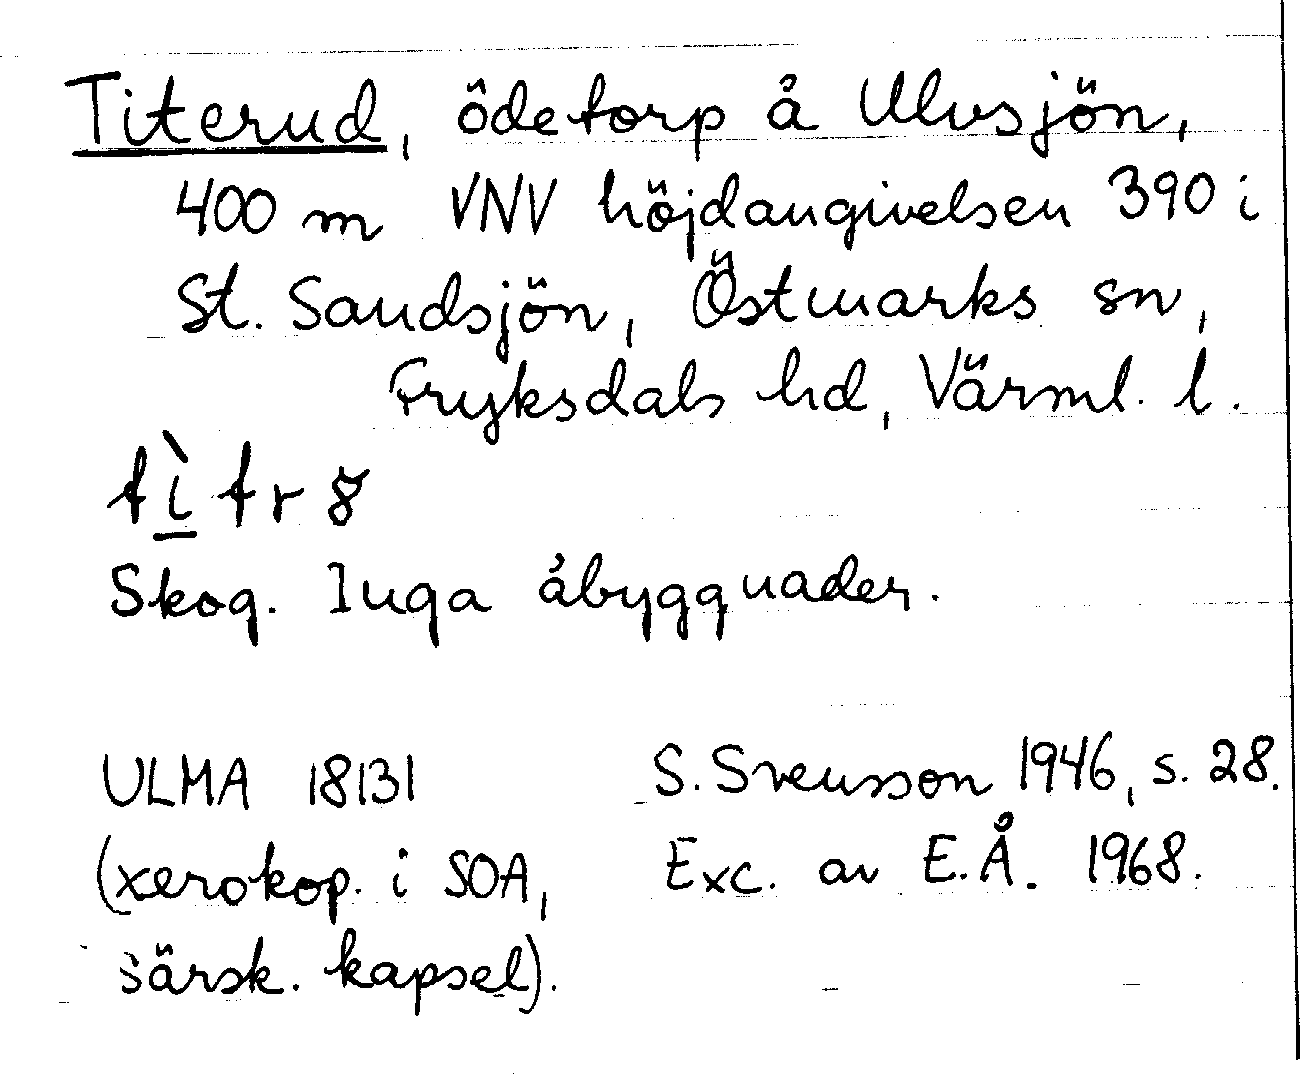 Titerud, ödetorp å Ulvsjön,
400 m VNV höjdangivelsen 390 i
St. Sandsjön, Östmarks sn,
Fryksdals hd, Värml. l.
tìtr
Skog. Inga åbyggnader.
ULMA 18131 S. Svensson 1946, s. 28.
(xerokop. i SOA, Exc. av E.Å. 1968.
särsk. kapsel).